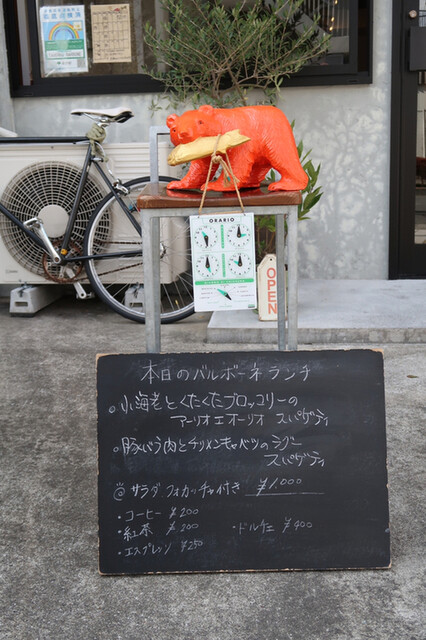 ORARIO
OPEN
本日のバルボーネランチ
小海老とくたくたブロッコリーの
アーリオエオーリオ スパゲティ
豚バラ肉とチリメンキャベツのラグー
スパゲティ
@ サラダ フォカッチャ付き ¥1,000
・コーヒー ¥200
・紅茶 ¥200 ・ドルチェ ¥400
・エスプレッソ ¥250